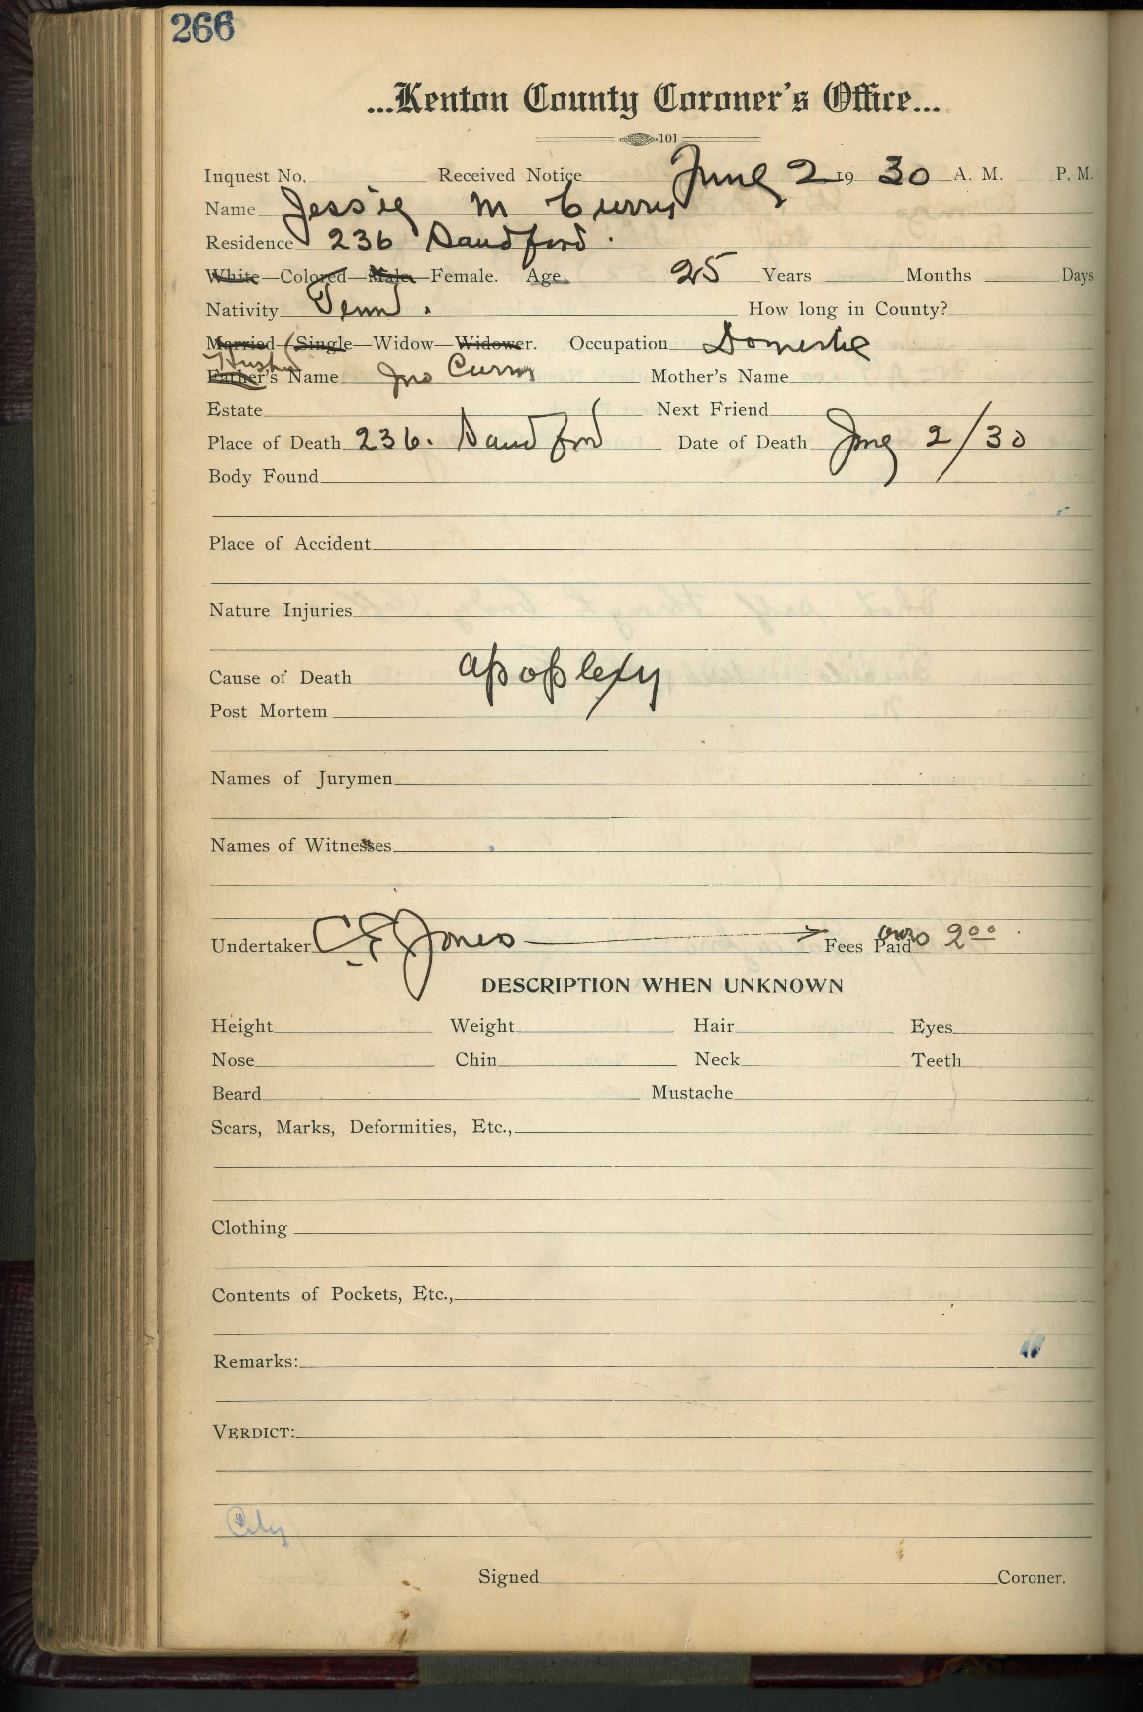 266
...Kenton County Coroner's Office...
101
Inquest No. Received Notice June 2 19 30 A. M. P. M.
Name Jessie M Curry
Residence 236 Sandford.
White—Colored—Male—Female. Age 25 Years Months Days
Nativity Tenn. How long in County?
Married—(Single—Widow—Widower. Occupation Domestic
Father's Name Jno Curry Mother's Name
Estate Next Friend
Place of Death 236. Sandford Date of Death June 2/30
Body Found
Place of Accident
Nature Injuries
Cause of Death apoplexy
Post Mortem
Names of Jurymen
Names of Witnesses
Undertaker C E Jones Fees Paid 2 00
DESCRIPTION WHEN UNKNOWN
Height Weight Hair Eyes
Nose Chin Neck Teeth
Beard Mustache
Scars, Marks, Deformities, Etc.,
Clothing
Contents of Pockets, Etc.,
Remarks:
VERDICT:
City
Signed Coroner.